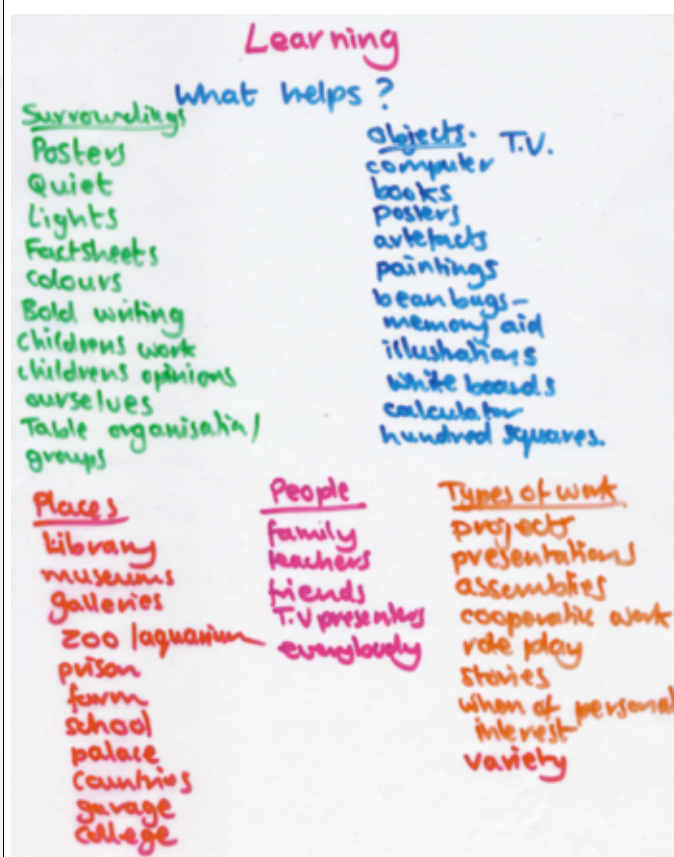 Learning
What helps?
Surroundings
Posters
Quiet
Lights
Factsheets
colours
Bold writing
childrens work
childrens opinions
ourselves
Table organisation/
groups
Objects. T.V.
computer
books
posters
artefacts
paintings
bean bugs -
memory aid
illustrations
white boards
calculator
hundred squares.
Places
Library
museums
galleries
zoo/aquarium
prison
farm
school
palace
countries
garage
college
People
family
teachers
friends
T.V presenters
everybody
Types of work
projects
presentations
assemblies
cooperative work
role play
stories
when of personal
interest
variety